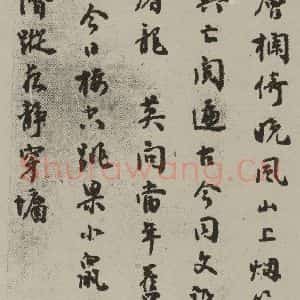 層欄倚晚風山上烟
興亡閱遍古今同文
龍英向當年
今日樓空跳果小鼠
潛蹤夜靜穿墉
shufawang.cn